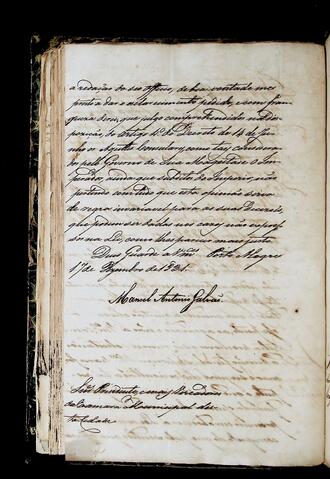 a redação do seo officio, de boa vontade me
presto a dar o esclarecimento pedido, e com fran
queza direi, que julgo comprehendidos na dis-
posição do Artigo 1º do Decreto de 14 de Ju-
nho os Agentes Consulares, como taes, considerados
pelo Governo de Sua Magestade o Im-
perador, ainda que subditos do Imperio, não
podendo com tudo que esta opinião sirva
de regra invariavel para as suas Decisões,
que podem ser dadas nos casos não expres-
sos na Lei, como lhes parecer mais justo.
Deus Guarde a Vmces Porto Alegre
17 de Dezembro de 1831.
Manoel Antonio Galvão
Snrs Presidente, e mais Vereadores
da Camara Municipal des-
ta Cidade.